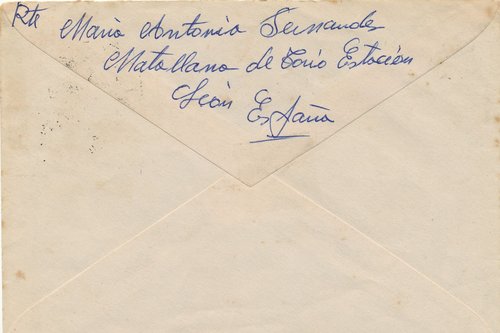 Rte Maria Antonia Fernandez
Matallana de Torio Estación
León España